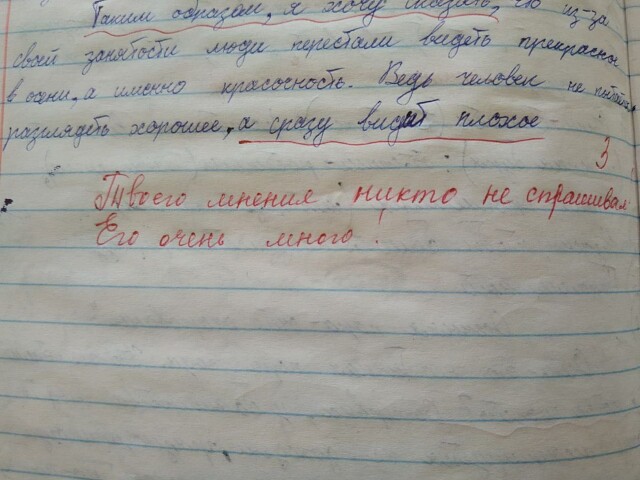 Таким образом, я хочу сказать, что из-за
свай занятости люди перестали видеть прекрасное
в одни, а именно красосность. Ведь человек не
разглядеть хорошее, а сразу видит плохое
3
Твоего мнения никто не спрашивал
Его очень много!